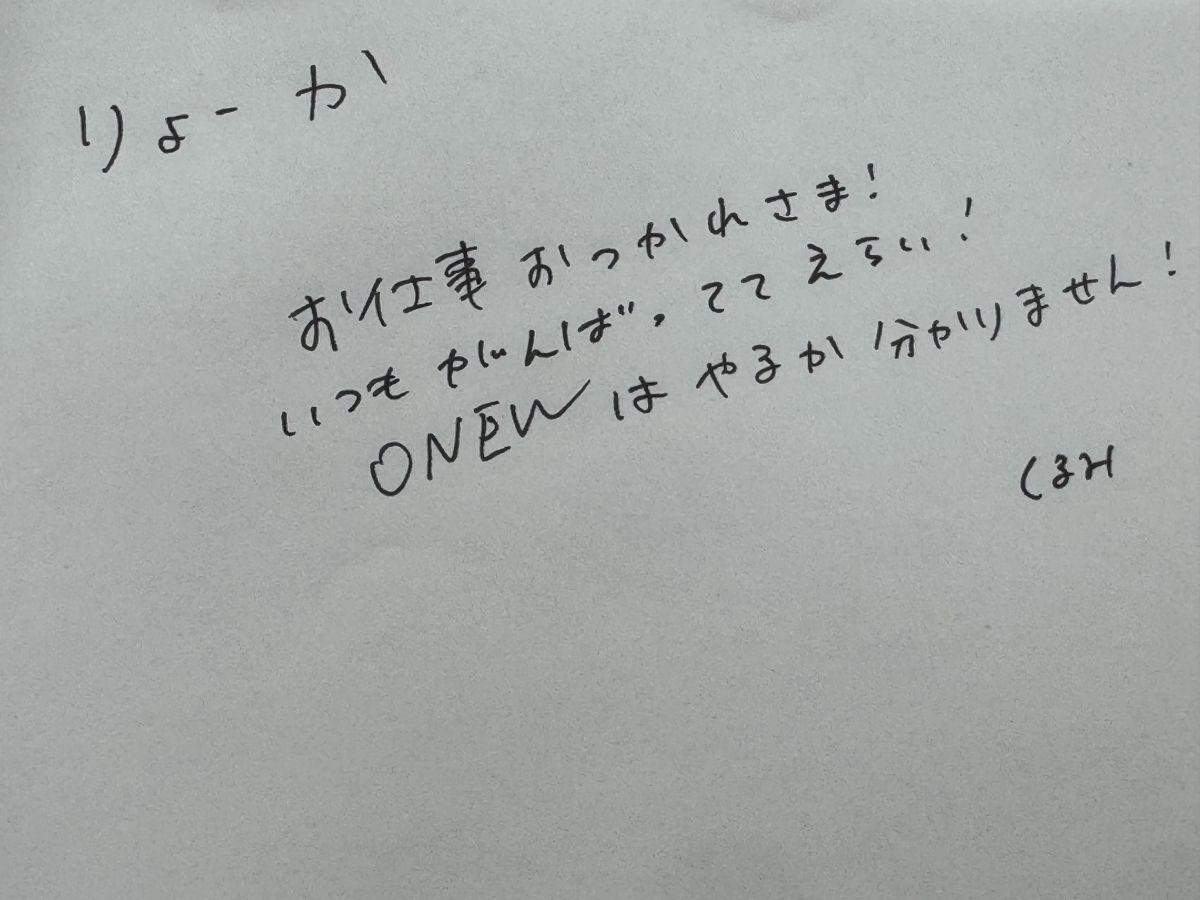 りょーか
お仕事おっかれさま!
いつもがんばっててえらい!
ONEWはやるか分かりません!
くるみ